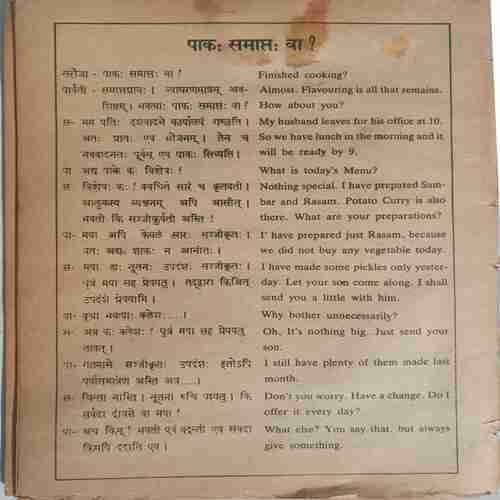 पाकः समाप्तः वा ?
सरोजा - पाकः समाप्तः वा ? Finished cooking?
पार्वती - समाप्तप्रायः । व्याघरणमात्रम् अव- Almost. Flavouring is all that remains.
शिष्टम् । भवत्याः पाकः समाप्तः वा ? How about you?
स- मम पतिः दशवादने कार्यालयं गच्छति । My husband leaves for his office at 10.
अतः प्रातः एव भोजनम् । तेन च So we have lunch in the morning and it
नववादनतः पूर्वम् एव पाकः सिध्यति । will be ready by 9.
पा अद्य पाके कः विशेषः ? What is today's Menu?
स विशेषः कः ? क्वथितं सारं च कृतवती । Nothing special. I have prepared Sam-
आलुकस्य व्यञ्जनम् अपि आसीत् । bar and Rasam. Potato Curry is also
भवती किं सज्जीकृतवती अस्ति ? there. What are your preparations?
पा- मया अपि केवलं सारः सज्जीकृतः । I have prepared just Rasam, because
यतः अद्य शाकः न आनीतः । we did not buy any vegetable today.
स- मया ह्यः नूतनः उपदंशः सज्जीकृतः । I have made some pickles only yester-
पुत्रं मया सह प्रेषयतु । तद्द्वारा किञ्चित् day. Let your son come along. I shall
उपदंशं प्रेषयामि । send you a little with him.
पा- वृथा भवत्याः क्लेशः....। Why bother unnecessarily?
स- अत्र कः क्लेशः ? पुत्रं मया सह प्रेषयतु Oh, It's nothing big. Just send your
तावत् । son.
पा- गतमासे सज्जीकृतः उपदंशः इतोऽपि I still have plenty of them made last
पर्याप्तमात्रेण अस्ति अत्र....। month.
स- चिन्ता नास्ति । नूतनां रुचिं पश्यतु । किं Don't you worry. Have a change. Do I
सर्वदा दीयते वा मया ? offer it every day?
पा- अथ किम् ? भवती एवं वदन्ती एव सर्वदा What else? You say that, but always
किमपि ददाति एव । give something.